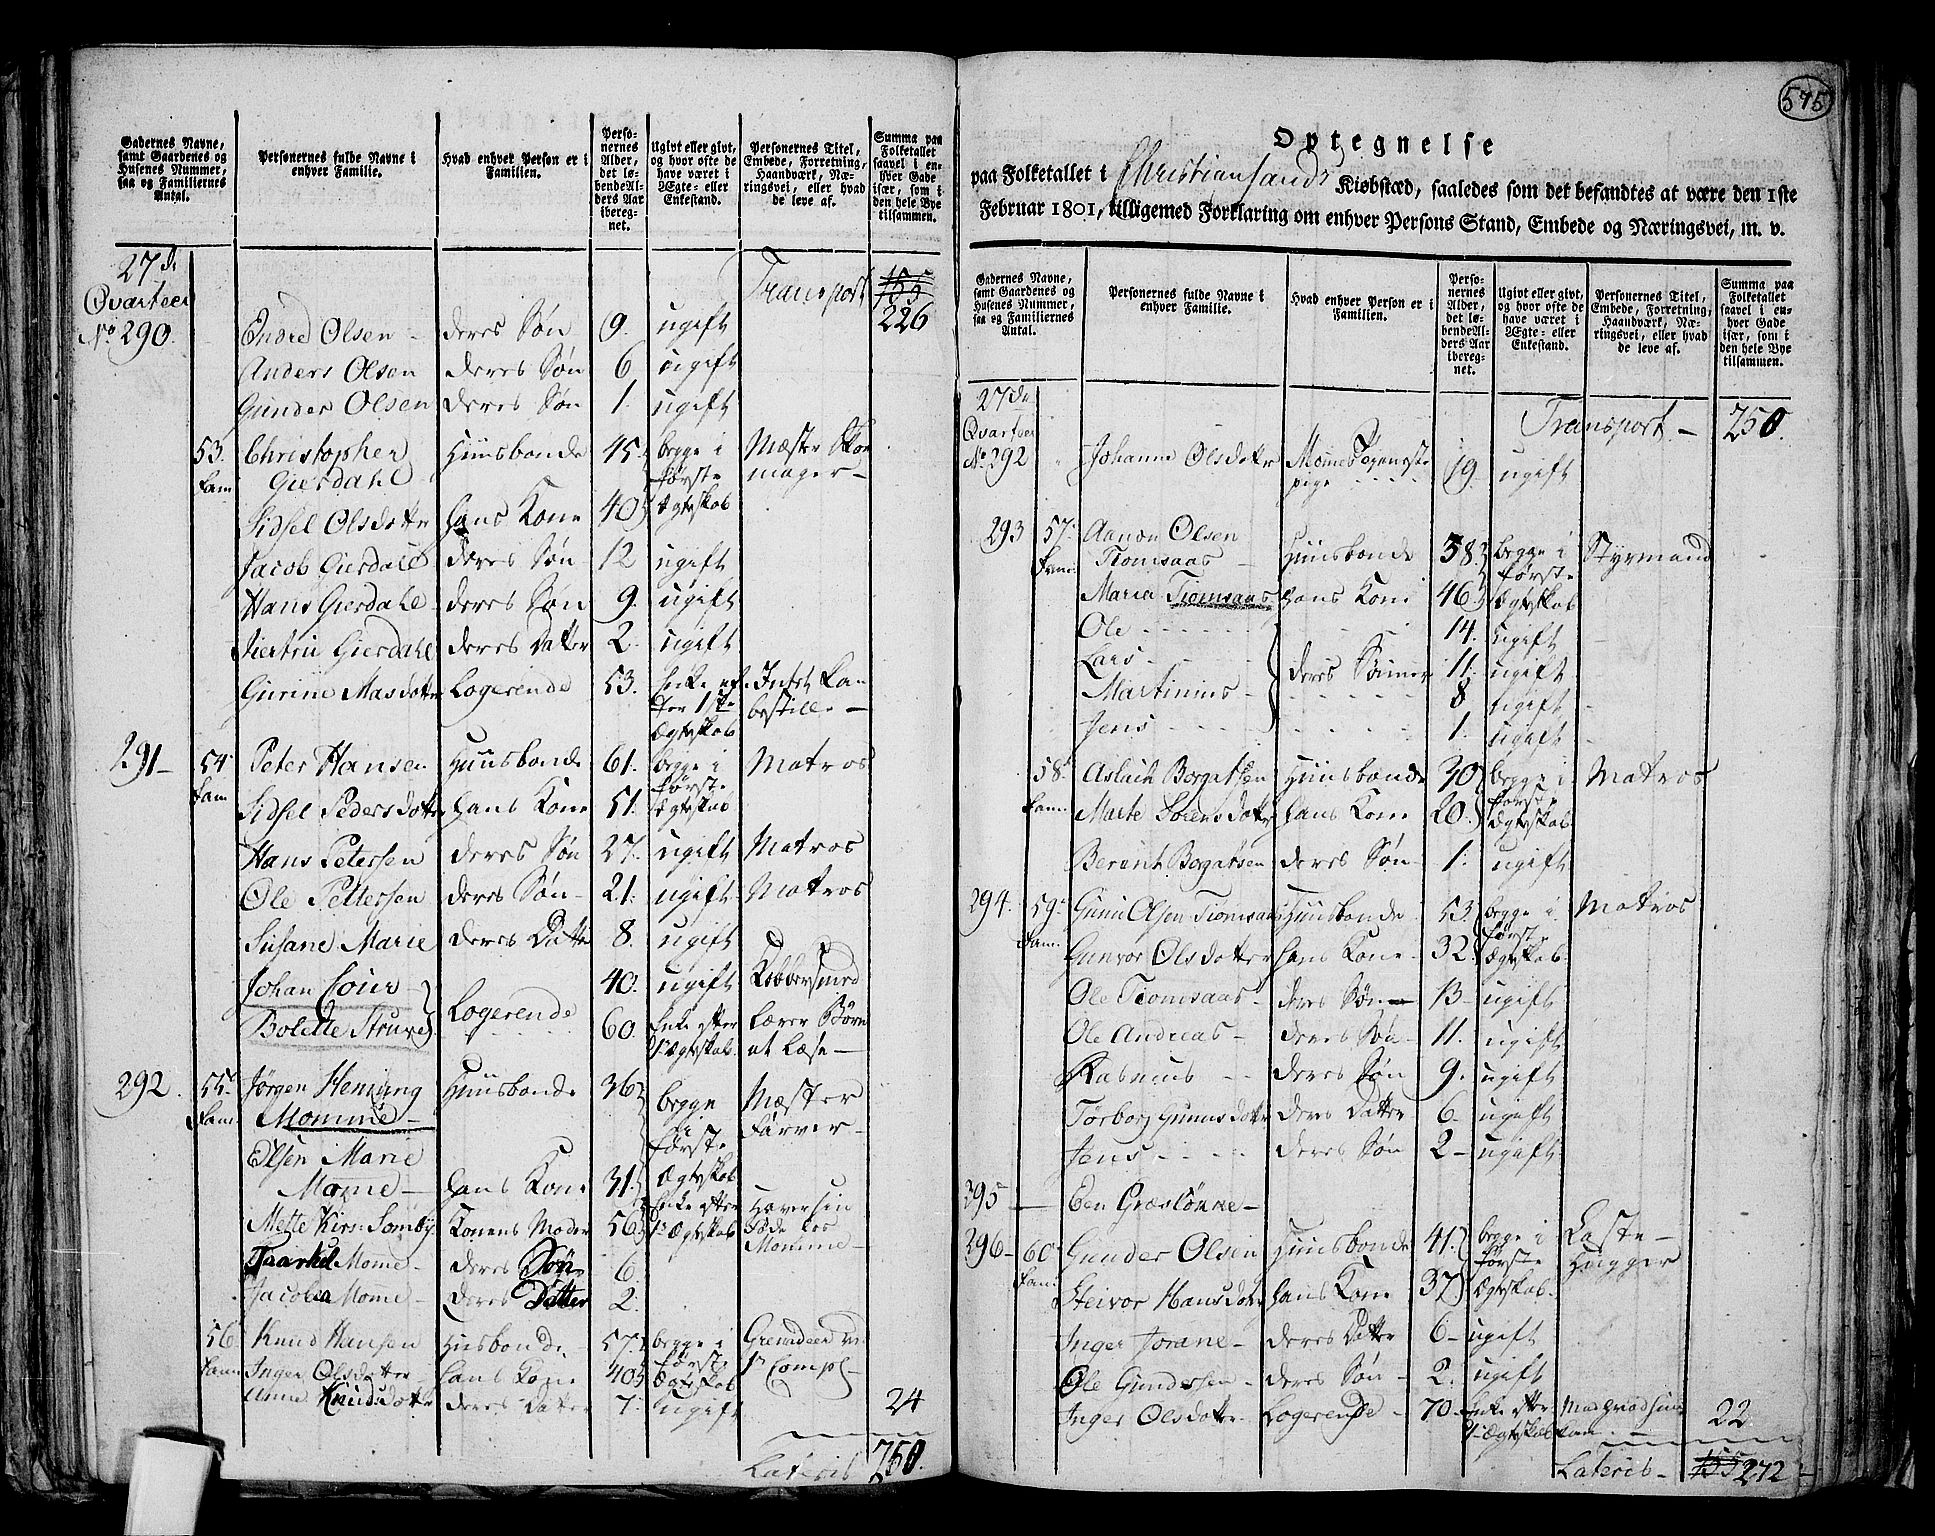 Gadernes Navne, samt Gaardenes og Husenes Nummer, saa og Familiernes Antal.
Personernes fulde Navne i enhver Familie.
Hvad enhver Person er i Familien.
Personernes Alder, det løbende Alders Aar iberegnet.
Ugivt eller givt, og hvor ofte de have været i Ægte- eller Enkestand.
Personernes Titel, Embede, Forretning, Haandværk, Næringsvei, eller hvad de leve af.
Summa paa Folketallet saavel i enhver Gade især, som i den hele Bye tilsammen.
27de Transport 155
Qvarteer 226
No 290. Endre Olsen - deres Søn 9. ugift
Anders Olsen deres Søn 6 ugift
Gunder Olsen deres Søn 1. ugift
53. Christopher Huusbonde 45. begge i Mæster Skoe
Fam Gierdahl første mager -
Sidsel Olsdotter hans Kone 40 Ægteskab
Jacob Gierdahl deres Søn 12 ugift
Hans Gierdahl deres Søn 9. ugift
Giertru Gierdahl deres Datter 2. ugift
Gurine Masdotter Logerende 53. Enke ef- Intet kan
ter 1ste bestille -
Ægteskab
291 - 54 Peter Hansen Huusbonde 61. begge i Matros
Fam første
Sidsel Pedersdotter hans Kone 51. Ægteskab
Hans Petersen deres Søn 27. ugift Matros
Ole Pettersen deres Søn - 21. ugift Matros
Susane Marie deres Datter 8. ugift
Johan Cour - 40. ugift Kobbersmed
Logerende
Bolette Struve 60. Enke efter lærer Børn
1te Ægteskab. at læse -
292. 55. Jørgen Heming Huusbonde 36 begge Mæster
Fam. Momme - i Farver -
Elsen Marie første
Mome - hans Kone 31. Ægteskab
Mette Kirs. Somby Konens Moder 56 Enke efter
1te Ægteskab Føde hos
Momme -
Taarkel Mome - deres Søn 6.
Jacobea Mome - deres Datter 2.
56 Knud Hansen Husbonde 57. begge i
Fam Inger Olsdotter hans Kone 40 første 1te Comp -
Ægteskab
Anne Knudsdotter deres Datter 7. ugift 24
Lateris 250.
575
Optegnelse
paa Folketallet i Christiansands Kiøbstæd, saaledes som det befandtes at være den 1ste
Februar 1801, tilligemed Forklaring om enhver Persons Stand, Embede og Næringsvei, m. v.
Gadernes Navne, samt Gaardenes og Husenes Nummer, saa og Familiernes Antal.
Personernes fulde Navne i enhver Familie.
Hvad enhver Person er i Familien.
Personernes Alder, det løbende Alders Aar iberegnet.
Ugivt eller givt, og hvor ofte de have været i Ægte- eller Enkestand.
Personernes Titel, Embede, Forretning, Haandværk, Næringsvei, eller hvad de leve af.
Summa paa Folketallet saavel i enhver Gade især, som i den hele Bye tilsammen.
27de
Qvarteer Transport - 250.
No 292 Johanne Olsdotter Momes Tjeneste
pige 19. ugift
293 57. Aanon Olsen
Fam: Tiomsaas - Huusbonde 38. begge i Styrmand
første
Maria Tiomsaas hans Kone 46 Ægteskab
Ole - - - 14. ugift
Lars - - - deres Sønner 11. ugift
Martinius - 8 ugift
Jens - - - 1. ugift
58. Aslach Borgersen Huusbonde 30 begge i Matros
Fam: Marte Sørensdotter hans Kone 26. første Ægteskab
Berent Borgersen deres Søn - 1. ugift
294. 59. Gunu Olsen Tiomsaas Huusbonde 53. begge i Matros
Fam. første
Gunvor Olsdotter hans Kone - 32 Ægteskab
Ole Tiomsaas - deres Søn - 13 - ugift
Ole Andreas - deres Søn - 11. ugift
Rasmus - - deres Søn 9. ugift
Torborg Gunusdotter deres Datter 6 ugift
Jens - - - deres Søn 2 - ugift
295 - Een Græsløkke -
296 - 60. Gunder Olsen Huusbonde 41. begge i Laste -
Fam. første Hugger
Steivor Hansdotter hans Kone 37 Ægteskab.
Inger Jorane - deres Datter 6 - ugift
Ole Gundersen - deres Søn - 2. ugift
Inger Olsdotter - Logerende - 70 - Enke efter 22
1te Ægteskab Lem.
Lateris - 155 272 -